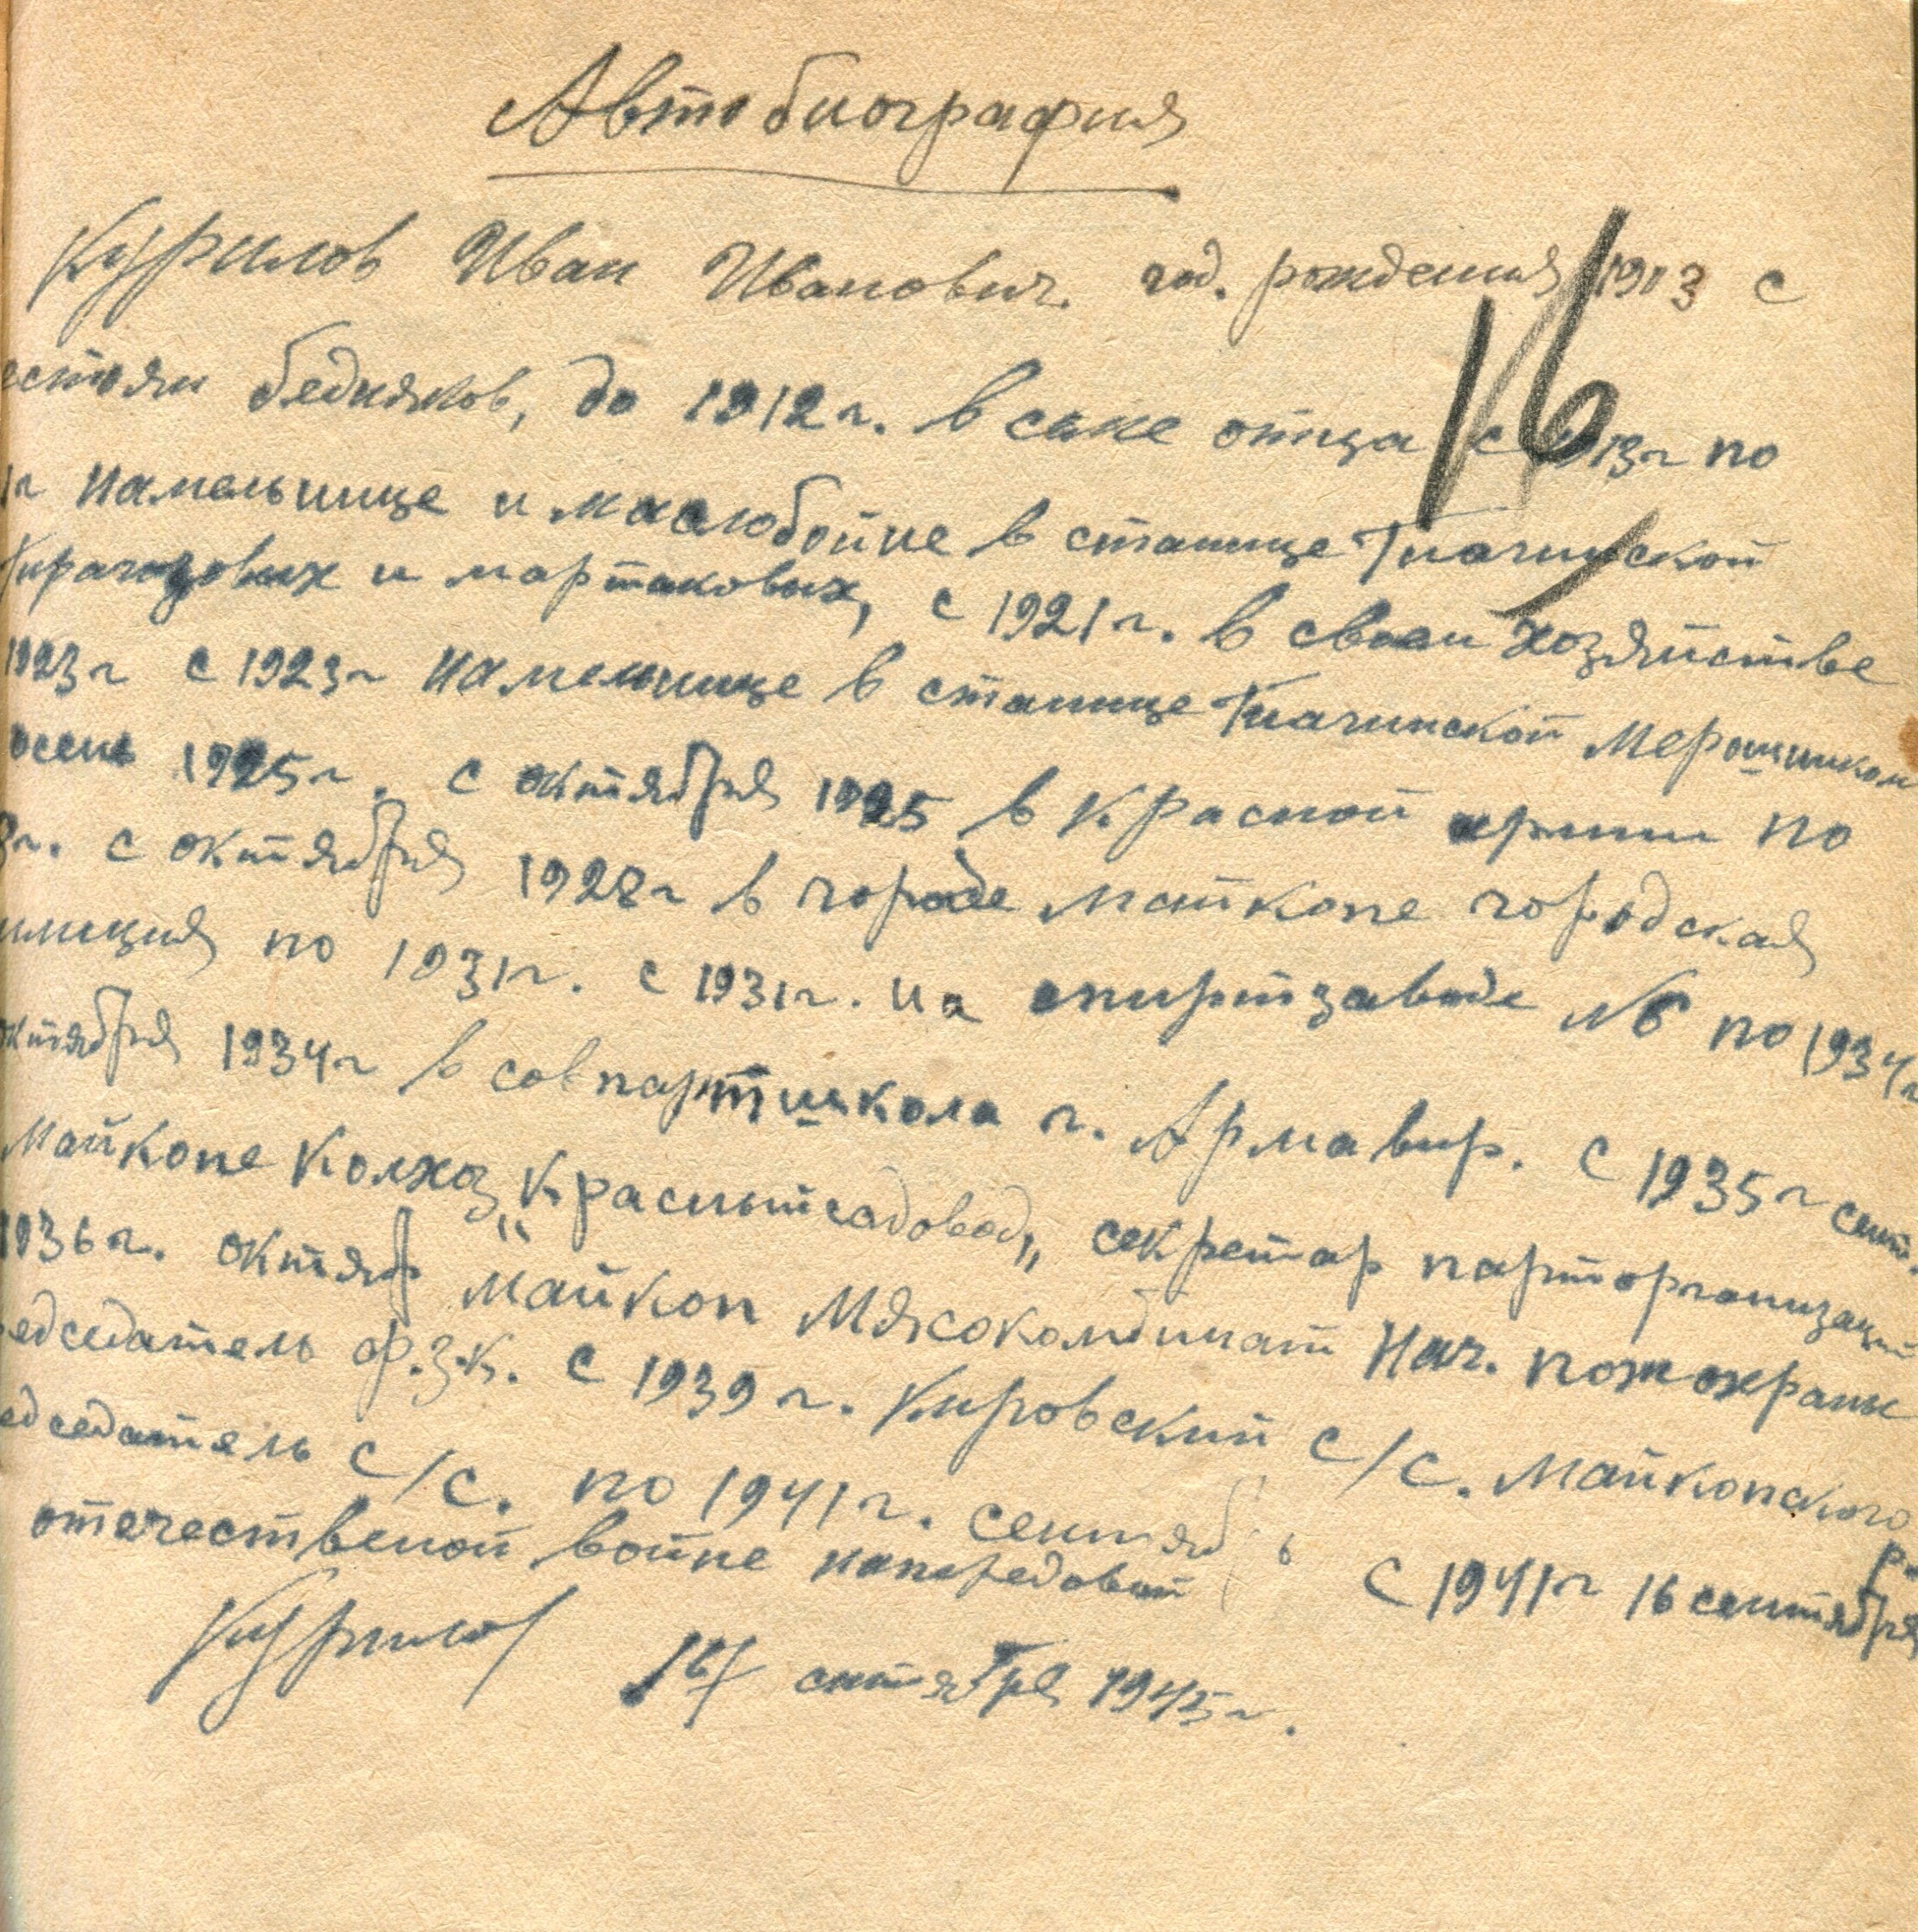 Автобиография
16
Курилов Иван Иванович. год. рождения 1903 с
естян бедняков, до 1912г. в сыне отца с 1913г по
1г намельнице и маслюбойне в станице Гиагинской
и мартаковых, с 1921г. в своем хозяйстве
1923г с 1923г намельнице в станице Гиагинской Мерошником
осень 1925г. с октября 1925 в Красной армии по
8г. с октября 1928г в городе майкопе городская
илиция по 1931г. с 1931г. на спиртзаводе №6 по 1934г
октября 1934г в совпартшкола г. Армавир. С 1935г сент.
майкопе Колхоз „Красныйсадовод„ секретар парторганизаций
1936г. октябр майкоп Мясокомбинат Нач. пожохраны
едседатель ф.з.к. с 1939г. Кировский с/с. майкопского
ра
едседатель с/с. по 1941г. сентяб с 1941г 16 сентября
отечественой войне
Курилов 16/ 1945г.